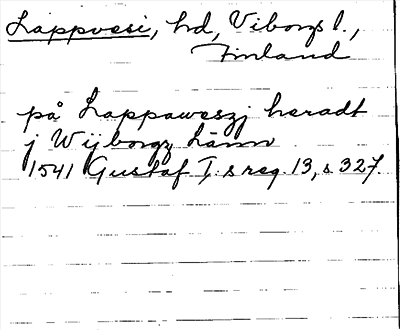 Lappvesi, hd, Viborgs l.,
Finland
på Lappaweszj heradt
j Wijborgz Länn
1541 Gustaf I:s reg. 13, s 327.